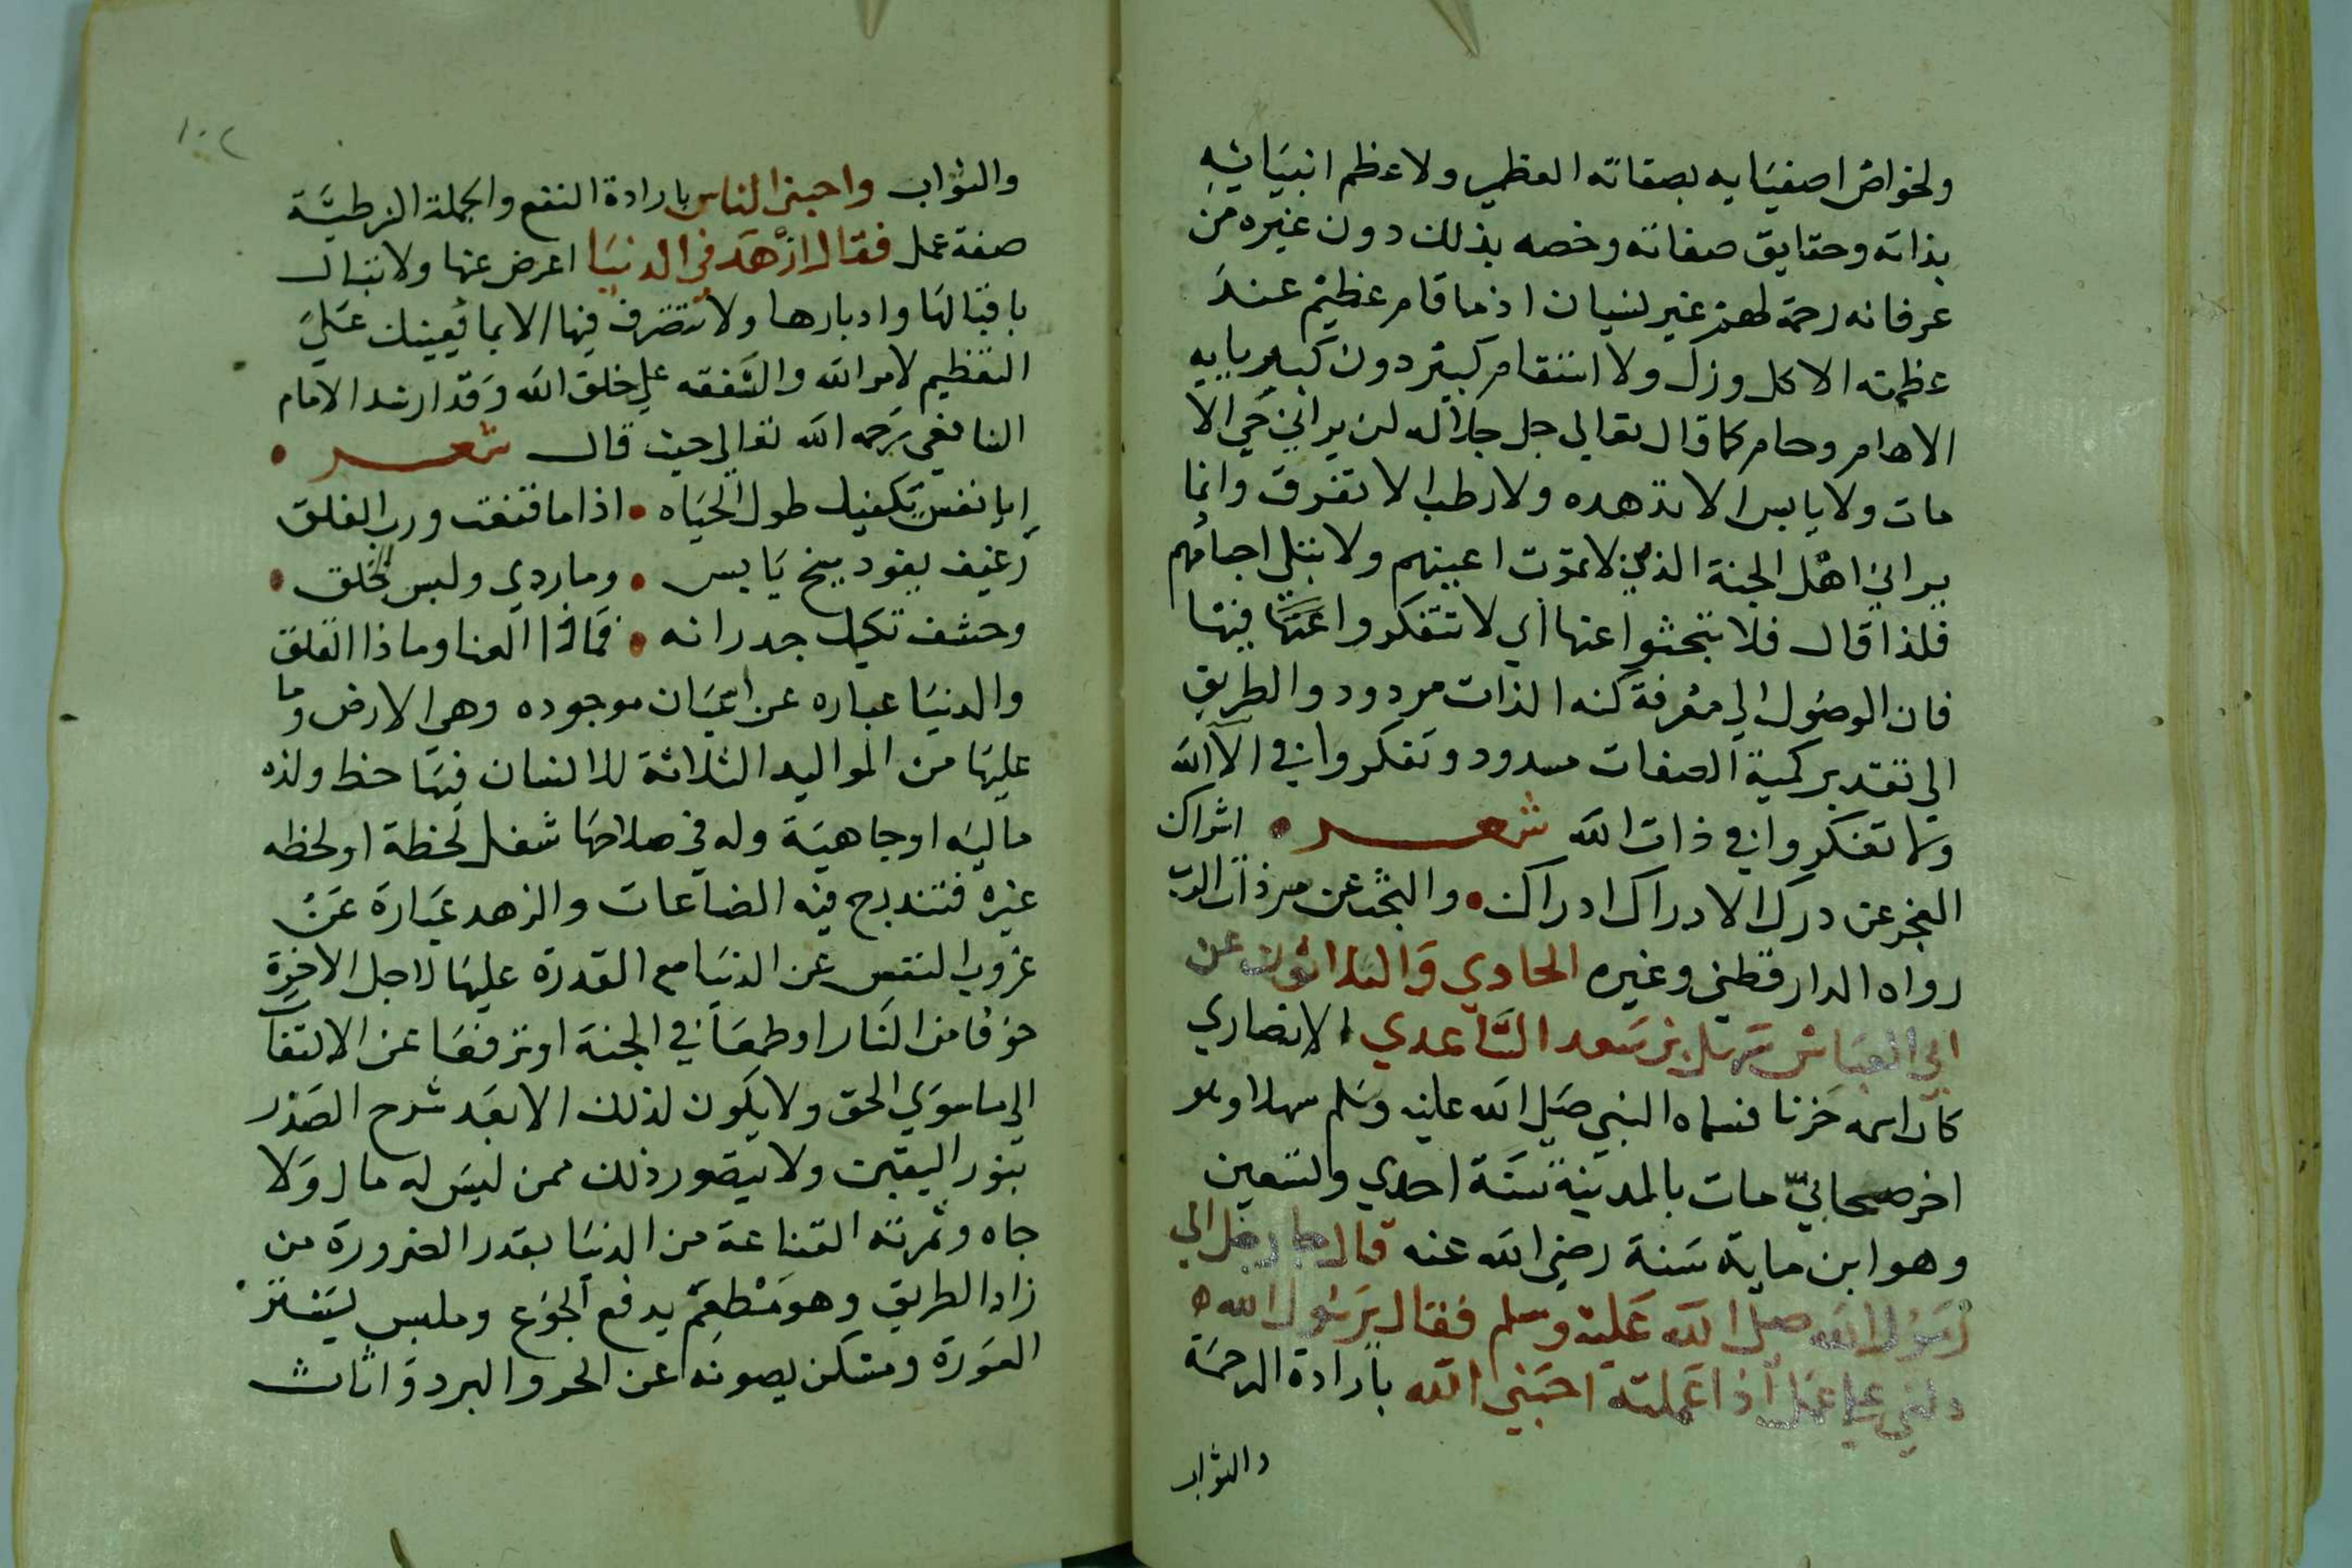 ولخواص اصفيايه بصفاته العظمي ولاعظم انبيائه
بذاته وحقايق صفاته وخصه بذلك دون غيره من
عرفانه رحمة لهم غير لنسيان اذ ما قام عظيم عند
عظمته الا كل وزل ولا انتقام كبير دون كبريايه
الا هام وحام كما قال تعالي جل جلاله لن يراني حي الا
مات ولا يابس الا تدهده ولا رطب الا تفرق وانما
يراني اهل الجنة الذين لا تموت اعينهم ولا تبلي اجسامهم
فلذا قال فلا تبحثوا عنها اي لا تتفكروا عنها فيها
فان الوصول الي معرفة كنه الذات مردود والطريق
الي تقدير كمية الصفات مسدود وتفكروا في الآ الله
ولا تفكروا في ذات الله شعر • اشراك
العجز عن درك الادراك ادراك • والبحث عن سر ذات الرب
رواه الدارقطني وغيره الحادي والثلاثون عن
ابي العباس سهل بن سعد الساعدي الانصاري
كان اسمه حزنا فسماه النبي صلي الله عليه وسلم سهلا وهو
اخر صحابي مات بالمدينة سنة احدي وتسعين
وهو ابن ماية سنة رضي الله عنه قال جا رجل الي
رسول الله صلي الله عليه وسلم فقال يرسول الله
دلني علي عمل اذا عملته احبني الله بارادة الرحمة
والثواب
١٠٢
والثواب واحبني الناس بارادة النفع والجملة الشرطية
صفة عمل فقال ازهد في الدنيا اعرض عنها ولا تبال
باقبالها وادبارها ولا تتصرف فيها الا بما يعينك علي
التعظيم لامر الله والشفقه علي خلق الله وقد ارشد الامام
الشافعي رحمه الله تعالي حيث قال شعر •
ايا نفس يكفيك طول الحياه • اذا ما قنعت ورب الفلق
رغيف بفودينج يابس • وما ردي ولبس الخلق •
وحشف تكيل جدرانه • فماذا العنا وماذا القلق
والدنيا عباره عن اعيان موجوده وهي الارض وما
عليها من المواليد الثلاثة للانسان فيها حظ ولذه
ماليه او جاهية وله في صلاحها شغل لحظة او لحظه
غيره فتندرج فيه الضاعات والزهد عبارة عن
عزوب النفس عن الدنيا مع القدرة عليها لاجل الاخرة
خوفا من النار او طمعا في الجنة او ترفعا عن الالتفا
الي ما سوي الحق ولا يكون لذلك الا بعد شرح الصدر
بنور اليقين ولا يتصور ذلك ممن ليس له مال ولا
جاه وثمرته القناعة من الدنيا بقدر الضرورة من
زاد الطريق وهو مطعم يدفع الجوع وملبس يستر
العورة ومسكن يصونه عن الحر والبرد واثاث